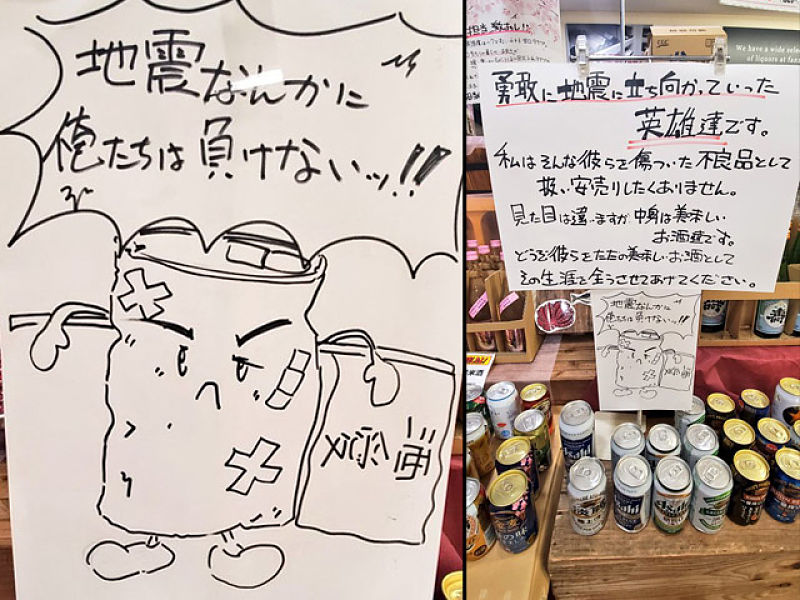 地震なんかに
俺たちは負けないッ!!
勇敢に地震に立ち向かっていった
英雄達です。
私はそんな彼らを傷ついた不良品として
扱い安売りしたくありません。
見た目は違いますが中身は美味しい
お酒達です。
どうぞ彼らをただの美味しいお酒として
その生涯を全うさせてあげてください。
地震なんかに
俺たちは負けないッ!!
We have a wide selec
of liquors at
Asahi
Asahi
Asahi